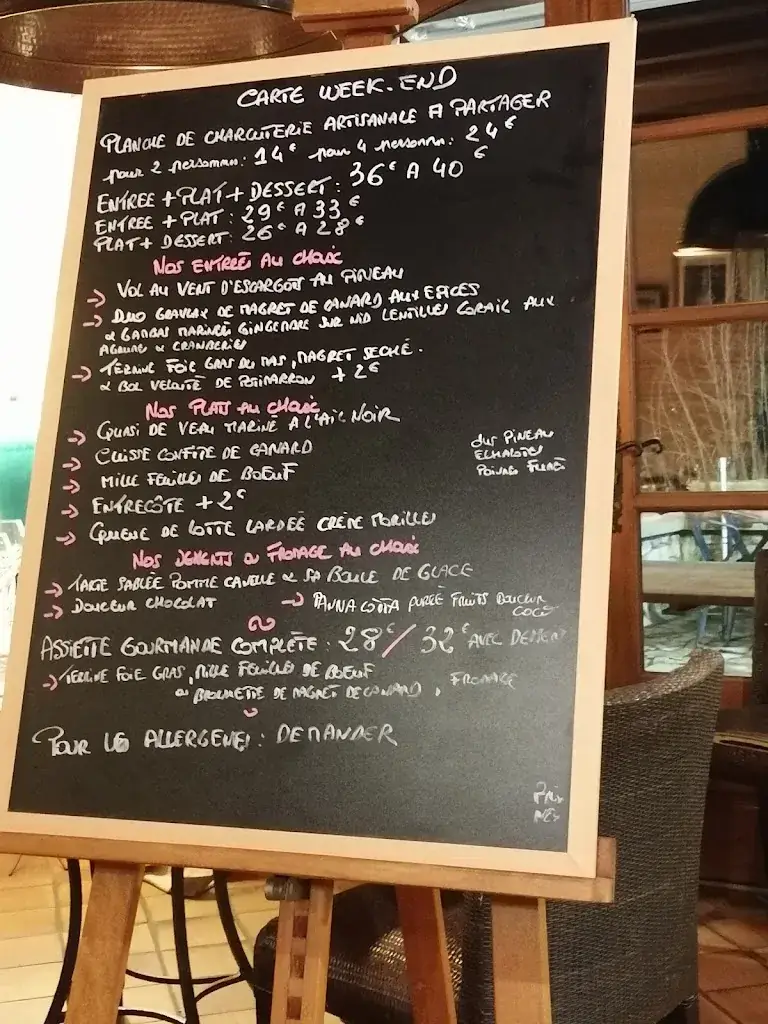 CARTE WEEK-END
PLANCHE DE CHARCUTERIE ARTISANALE A PARTAGER
pour 2 personnes: 14€ pour 4 personnes: 24€
ENTREE + PLAT + DESSERT: 36€ A 40€
ENTREE + PLAT: 29€ A 33€
PLAT + DESSERT: 26€ A 28€
NOS ENTREES AU CHOIX
→ VOL AU VENT D'ESCARGOTS AU PINEAU
→ DUO GRAVLAX DE MAGRET DE CANARD AUX EPICES
& GAMBAS MARINEE GINGEMBRE SUR NID LENTILLES CORAIL AUX
AGRUME & CRANBERRIES
→ TERRINE FOIE GRAS DU MAS, MAGRET SECHÉ.
& BOL VELOUTÉ DE POTIMARRON + 2€
NOS PLATS AU CHOIX
→ QUASI DE VEAU MARINÉ A L'AIL NOIR
→ CUISSE CONFITE DE CANARD
→ MILLE FEUILLES DE BOEUF
→ ENTRECÔTE + 2€
→ QUEUE DE LOTTE LARDÉE CRÈME MORILLES
jus PINEAU
ECHALOTES
POIVRE FUMÉ
NOS DESSERTS OU FROMAGE AU CHOIX
→ TARTE SABLÉE POMME CANELLE & SA BOULE DE GLACE
→ DOUCEUR CHOCOLAT → PANNA COTTA PURÉE FRUITS DOUCEUR
COCO
ASSIETTE GOURMANDE COMPLÈTE: 28€/32€ AVEC DESSERT
→ TERRINE FOIE GRAS, MILLE FEUILLES DE BOEUF
ou BROCHETTE DE MAGRET DE CANARD, FROMAGE
POUR LES ALLERGENES: DEMANDER
PRIX
NETS